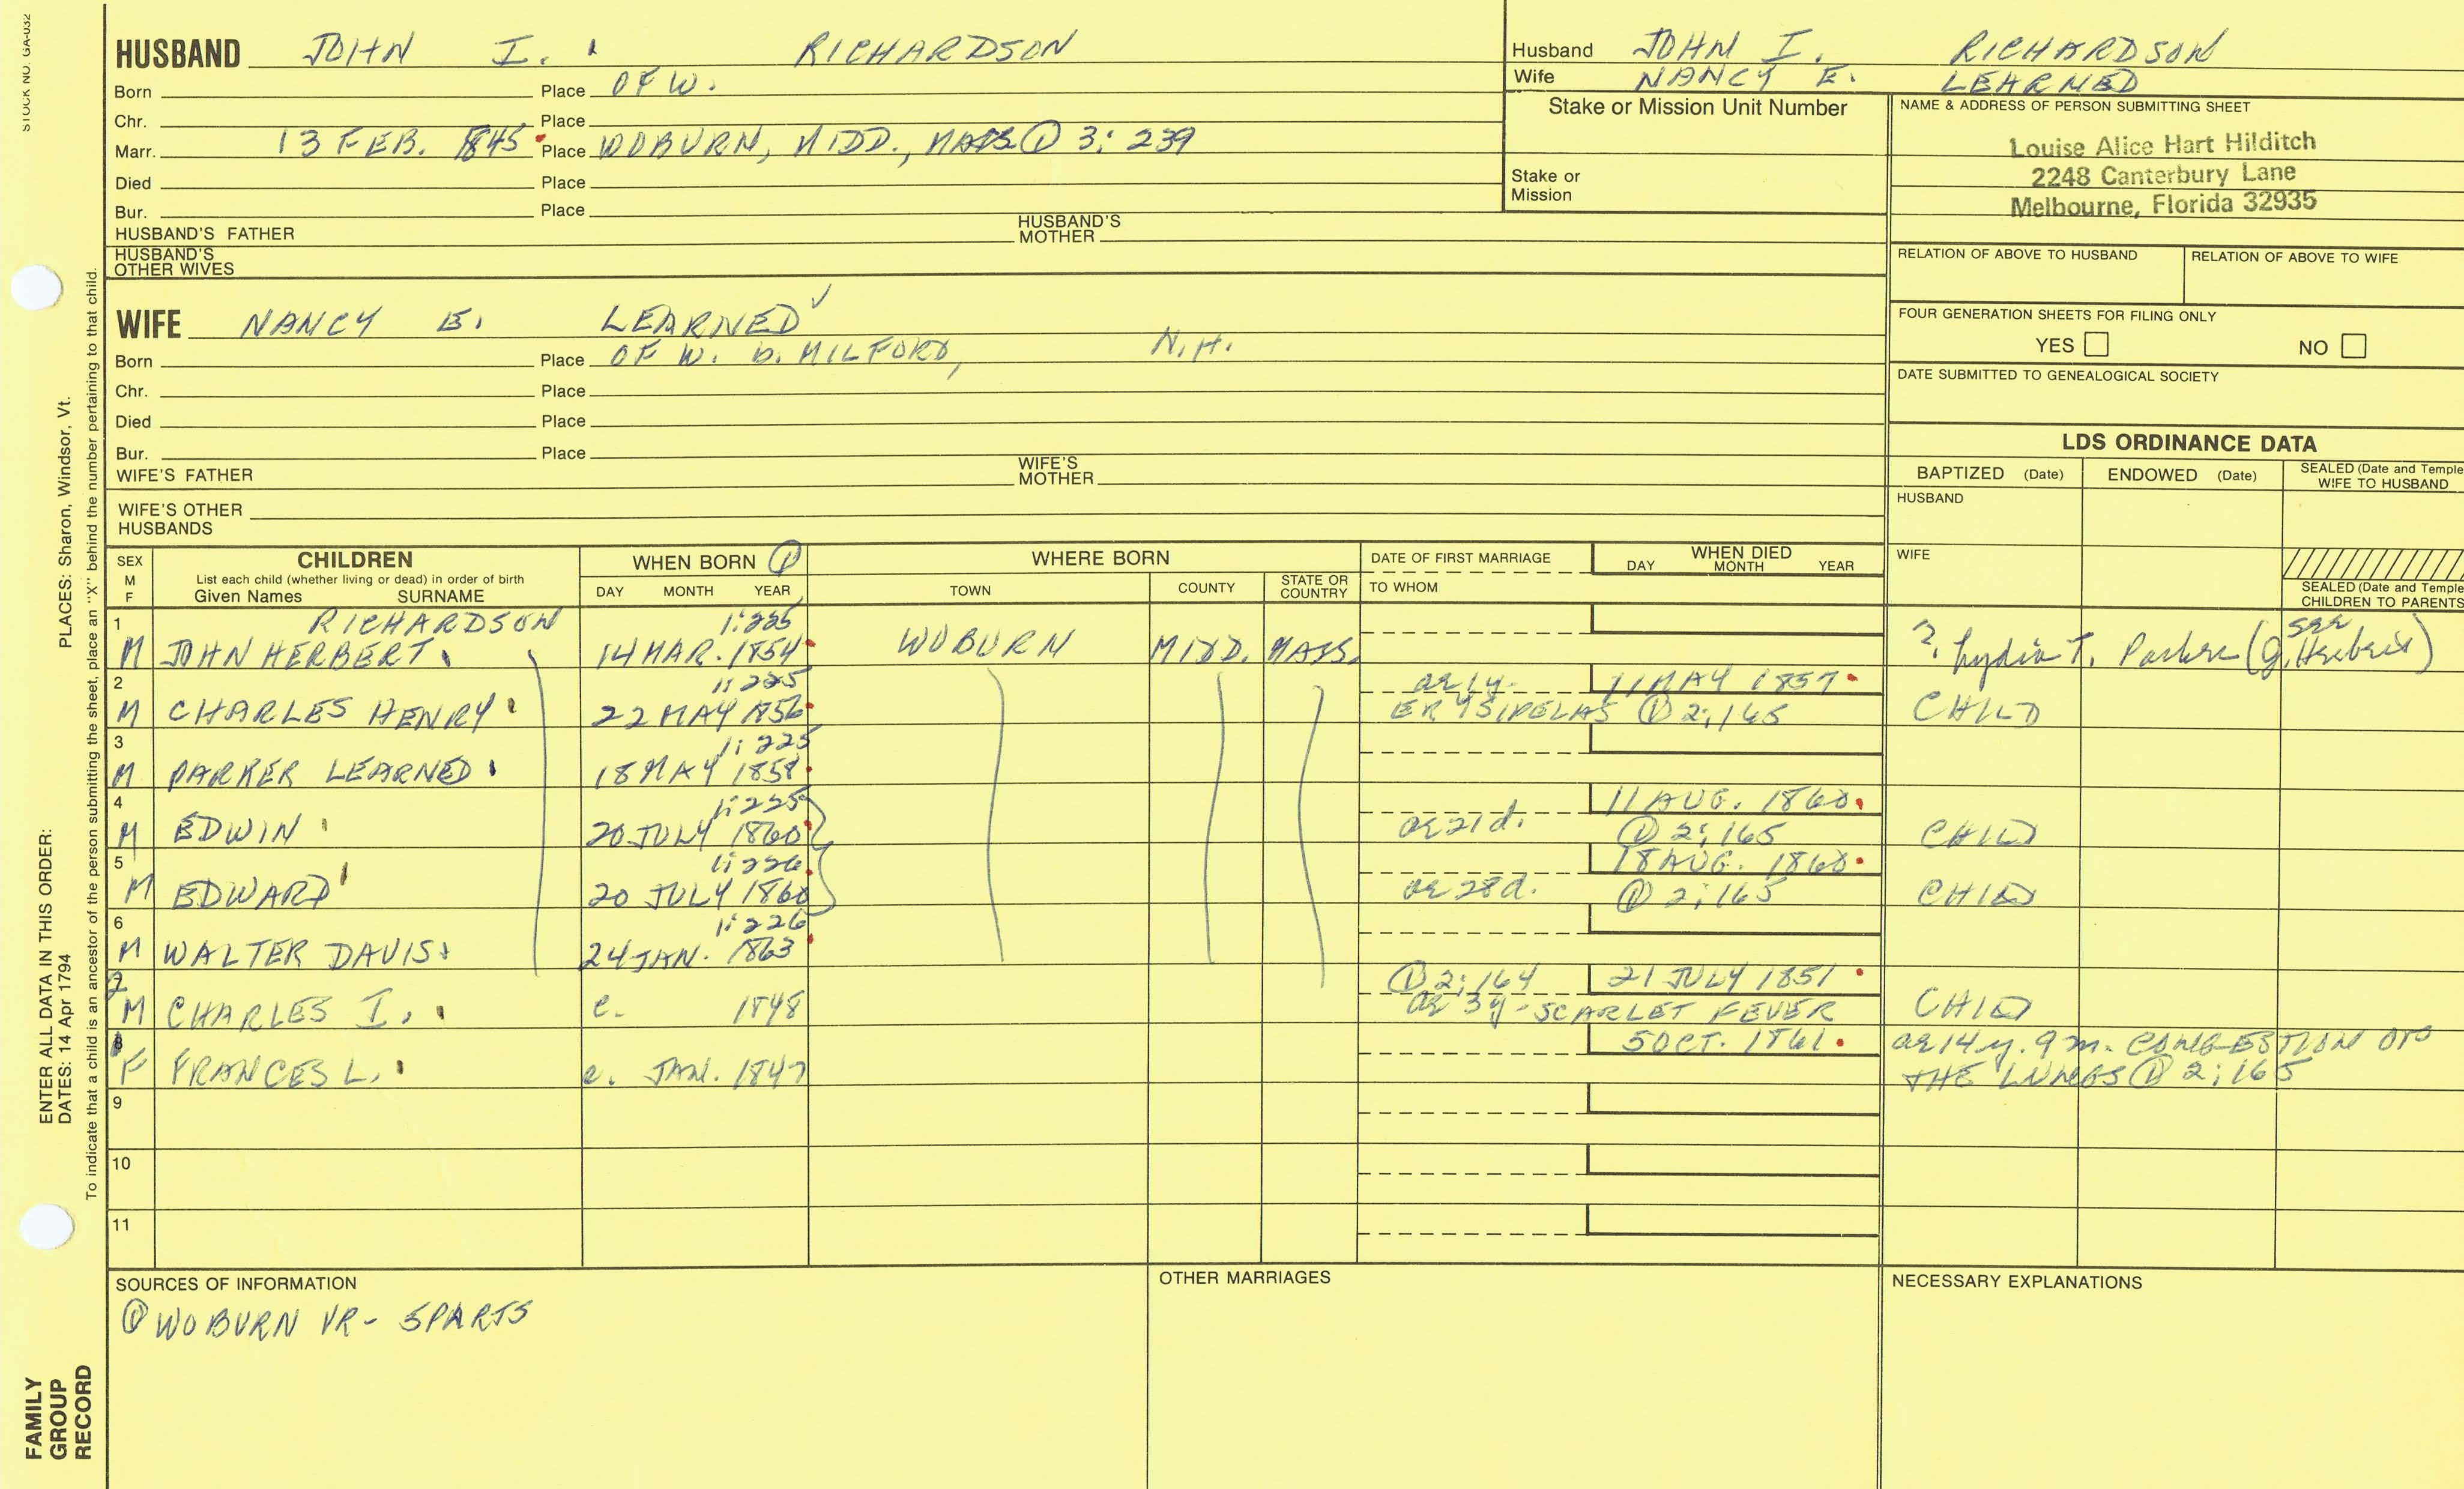 STOCK NO. GA-032
HUSBAND JOHN I. RICHARDSON
Born Place OF W.
Chr. Place
Marr. 13 FEB. 1845 Place WOBURN, MIDD., MASS ① 3: 239
Died Place
Bur. Place
HUSBAND'S FATHER HUSBAND'S MOTHER
HUSBAND'S OTHER WIVES
Husband JOHN I. RICHARDSON
Wife NANCY E. LEARNED
Stake or Mission Unit Number
Stake or
Mission
NAME & ADDRESS OF PERSON SUBMITTING SHEET
Louise Alice Hart Hilditch
2248 Canterbury Lane
Melbourne, Florida 32935
RELATION OF ABOVE TO HUSBAND RELATION OF ABOVE TO WIFE
FOUR GENERATION SHEETS FOR FILING ONLY
YES NO
DATE SUBMITTED TO GENEALOGICAL SOCIETY
WIFE NANCY E. LEARNED
Born Place OF W. b. MILFORD, N.H.
Chr. Place
Died Place
Bur. Place
WIFE'S FATHER WIFE'S MOTHER
WIFE'S OTHER
HUSBANDS
LDS ORDINANCE DATA
BAPTIZED (Date) ENDOWED (Date) SEALED (Date and Temple
WIFE TO HUSBAND
HUSBAND
WIFE
SEALED (Date and Temple
CHILDREN TO PARENTS
SEX
M
F
CHILDREN
List each child (whether living or dead) in order of birth
Given Names SURNAME
WHEN BORN ①
DAY MONTH YEAR
WHERE BORN
TOWN COUNTY STATE OR COUNTRY
DATE OF FIRST MARRIAGE
TO WHOM
WHEN DIED
DAY MONTH YEAR
1 RICHARDSON 1:225
M JOHN HERBERT 14 MAR. 1854 WOBURN MIDD. MASS. ? Lydia T. Parker (see G. Herbert)
2 1:225 ae 1y. 11 MAY 1857
M CHARLES HENRY 22 MAY 1856 ERYSIPELAS ① 2:165 CHILD
3 1:225
M PARKER LEARNED 18 MAY 1858
4 1:225 11 AUG. 1860
M EDWIN 20 JULY 1860 ae 21d. ① 2:165 CHILD
5 1:226 18 AUG. 1860
M EDWARD 20 JULY 1860 ae 28d. ① 2:165 CHILD
6 1:226
M WALTER DAVIS 24 JAN. 1863
7 ① 2:164 21 JULY 1851
M CHARLES I. c. 1848 ae 3y - SCARLET FEVER CHILD
8 5 OCT. 1861 ae 14 y. 9 m. CONGESTION OF
F FRANCES L. c. JAN. 1847 THE LUNGS ① 2:165
9
10
11
SOURCES OF INFORMATION
① WOBURN VR - 5 PARTS
OTHER MARRIAGES
NECESSARY EXPLANATIONS
ENTER ALL DATA IN THIS ORDER:
DATES: 14 Apr 1794 PLACES: Sharon, Windsor, Vt.
To indicate that a child is an ancestor of the person submitting the sheet, place an "X" behind the number pertaining to that child.
FAMILY
GROUP
RECORD